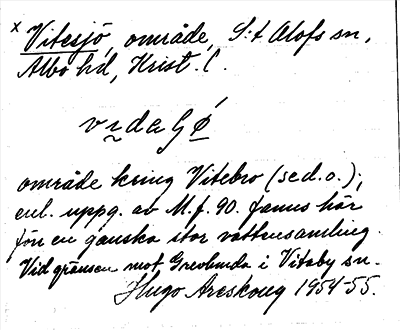 x Vitesjö, område, S:t Olofs sn,
Albo hd, Krist. l.
vıdaGǿ
område kring Vitebro (se d.o.);
enl. uppg. av M.f. 90. fanns här
förr en ganska stor vattensamling.
Vid gränsen mot Grevlunda i Vitaby sn.
Hugo Areskoug 1954-55.